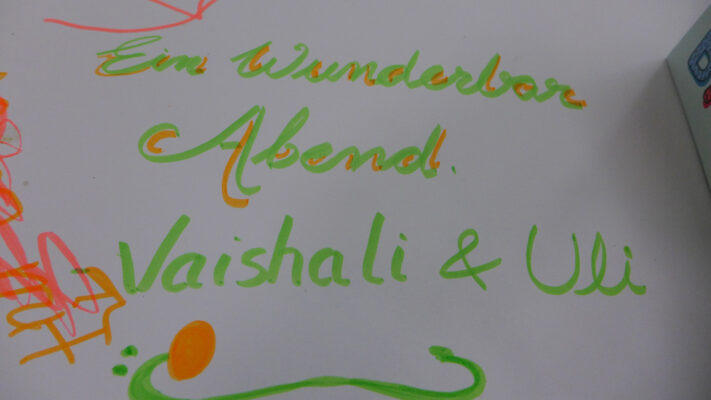 Ein Wunderbar
Abend.
Vaishali & Uli